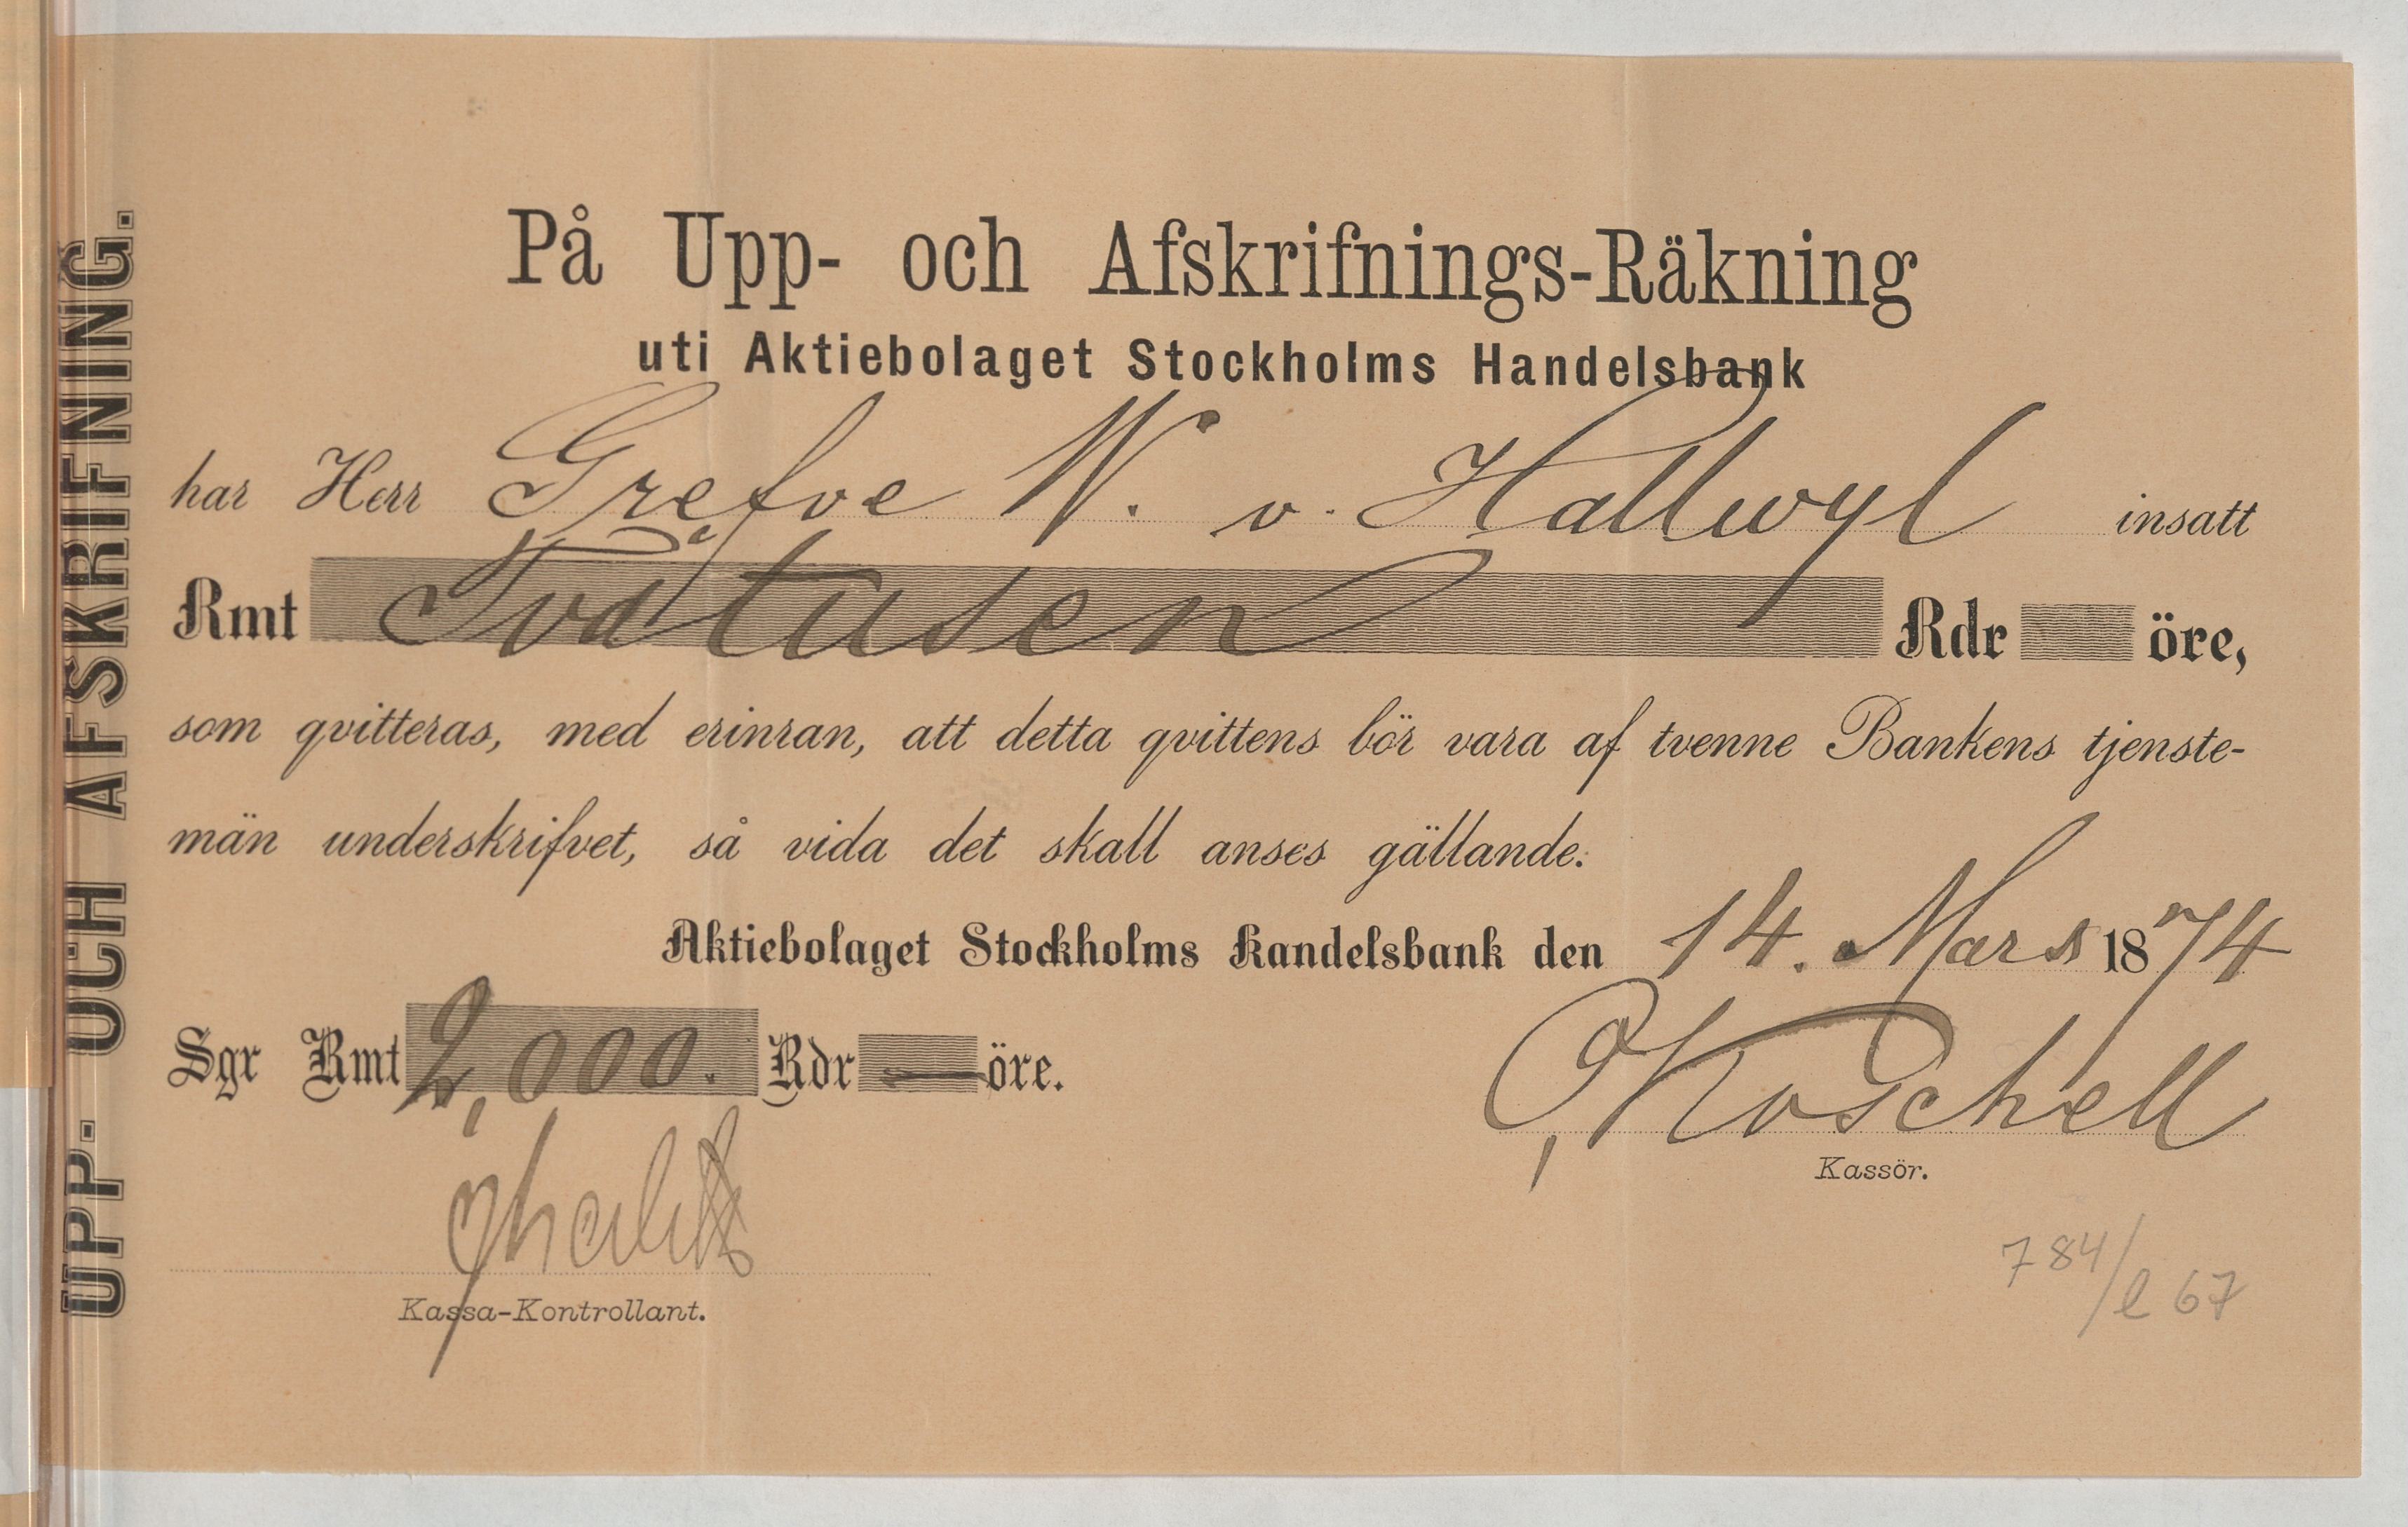 UPP- OCH AFSKRIFNING.
På Upp- och Afskrifnings-Räkning
uti Aktiebolaget Stockholms Handelsbank
har Herr Grefve W. v. Hallwyl insatt
Rmt Tvåtusen Rdr öre,
som qvitteras, med erinran, att detta qvittens bör vara af tvenne Bankens tjenste-
män underskrifvet, så vida det skall anses gällande.
Aktiebolaget Stockholms Handelsbank den 14. Mars 1874
Sgr Rmt 2,000. Rdr — öre.
Koschell
Kassör.
Kassa-Kontrollant.
784/l 67